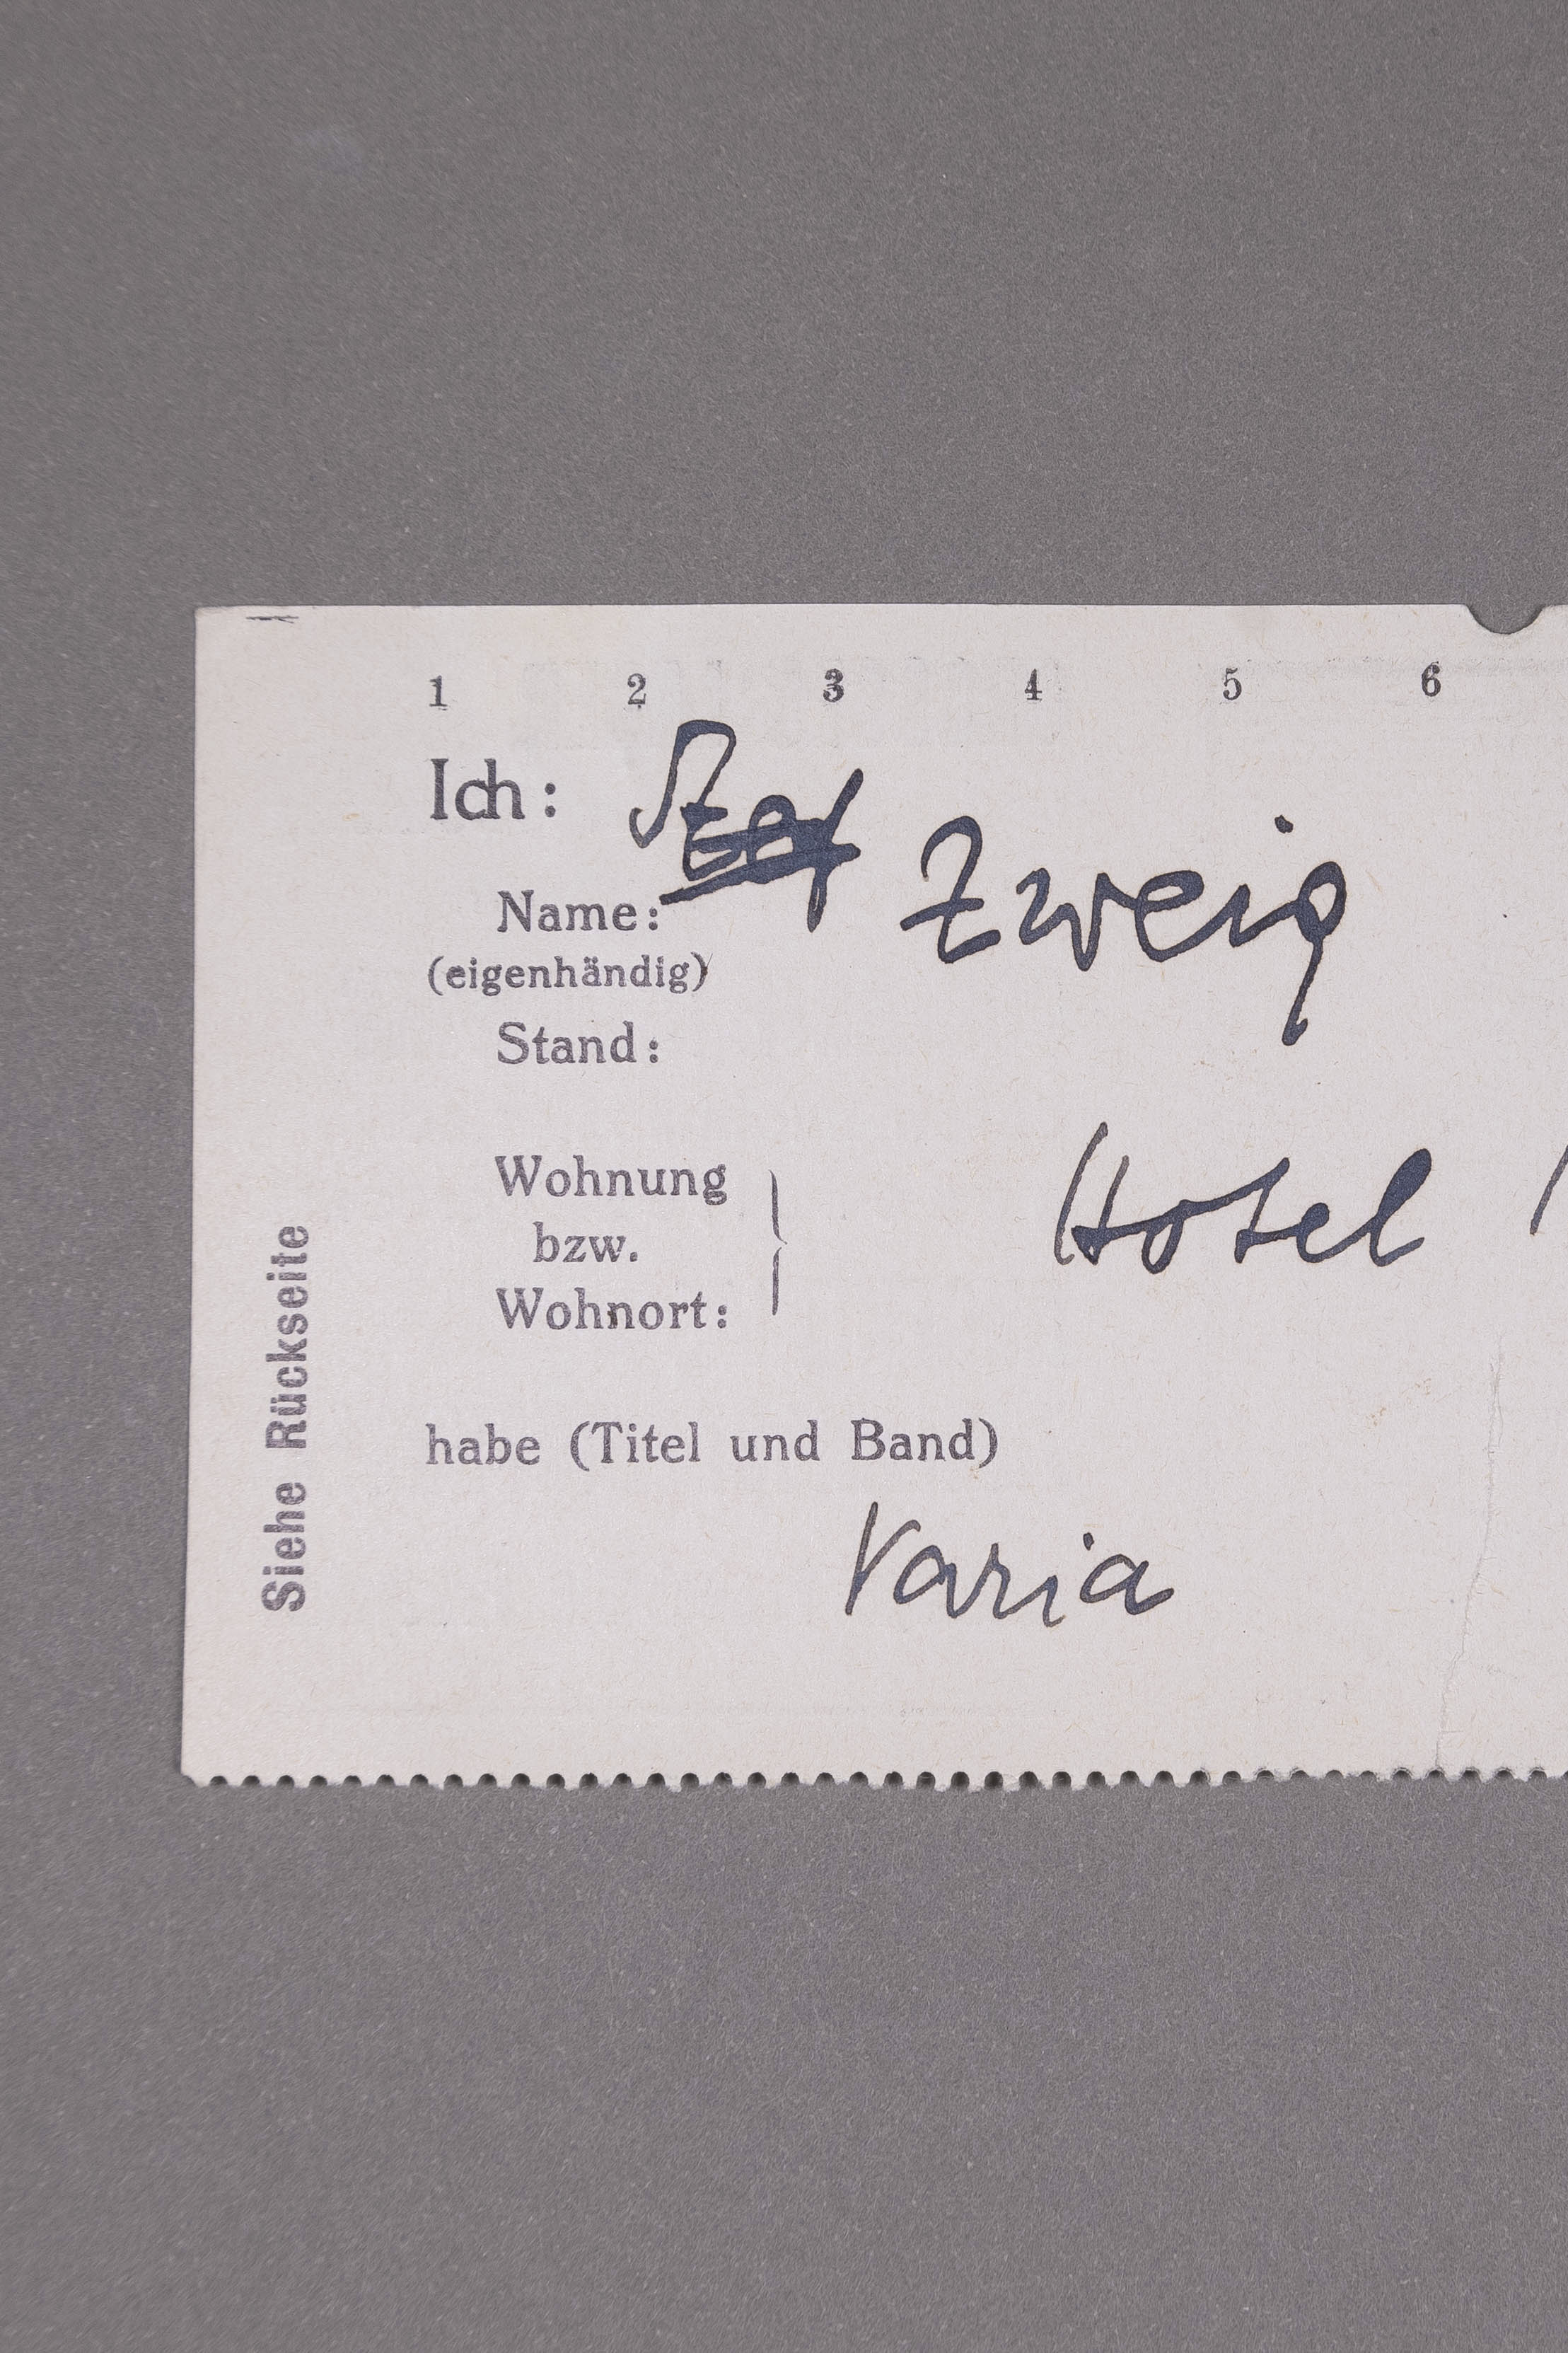 1 2 3 4 5 6
Ich: Stef Zweig
Name:
(eigenhändig)
Stand:
Wohnung
bzw.
Wohnort:
Hotel
habe (Titel und Band)
Varia
Siehe Rückseite